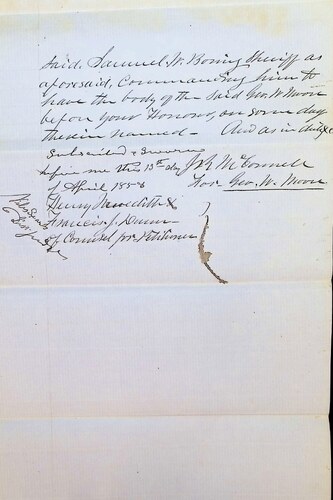 Said, Samuel W. Boring Sheriff as
aforesaid, Commanding him to
have the body of the said Geo. W. Moore
before your Honor, on some day
therein named – And as in duty &c
Subscribed & Sworn
before me this 13th day Jos. McConnell
of April 1858 For Geo. W. Moore
Henry Meredith &
Francis J. Dunn
of Counsel for Petitioner